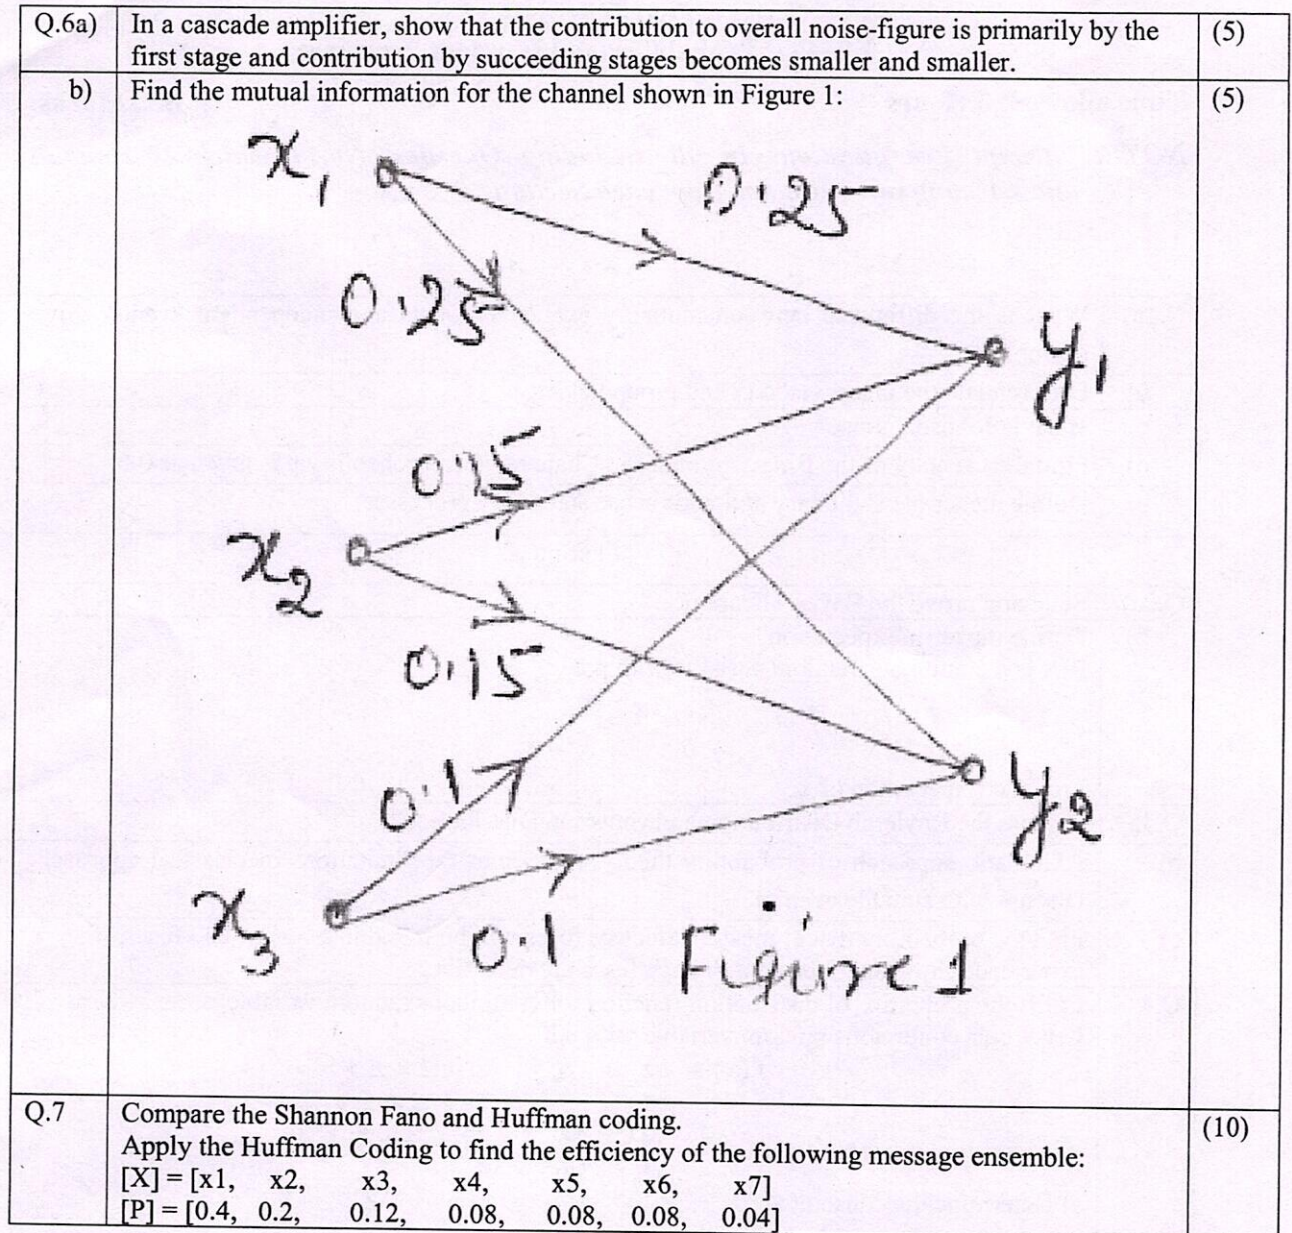 Q.6a) In a cascade amplifier, show that the contribution to overall noise-figure is primarily by the (5)
first stage and contribution by succeeding stages becomes smaller and smaller.
b) Find the mutual information for the channel shown in Figure 1: (5)
x1
0.25
0.25
y1
0.15
x2
0.15
0.1
y2
x3
0.1
Figure 1
Q.7 Compare the Shannon Fano and Huffman coding. (10)
Apply the Huffman Coding to find the efficiency of the following message ensemble:
[X] = [x1, x2, x3, x4, x5, x6, x7]
[P] = [0.4, 0.2, 0.12, 0.08, 0.08, 0.08, 0.04]